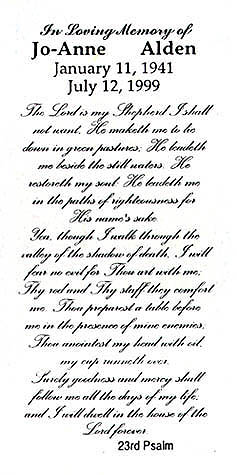 In Loving Memory of
Jo-Anne Alden
January 11, 1941
July 12, 1999
The Lord is my Shepherd, I shall
not want, He maketh me to lie
down in green pastures; He leadeth
me beside the still waters. He
restoreth my soul: He leadeth me
in the paths of righteousness for
His name's sake.
Yea, though I walk through the
valley of the shadow of death, I will
fear no evil for Thou art with me;
Thy rod and Thy staff they comfort
me. Thou preparest a table before
me in the presence of mine enemies,
Thou anointest my head with oil,
my cup runneth over.
Surely goodness and mercy shall
follow me all the days of my life;
and I will dwell in the house of the
Lord forever.
23rd Psalm